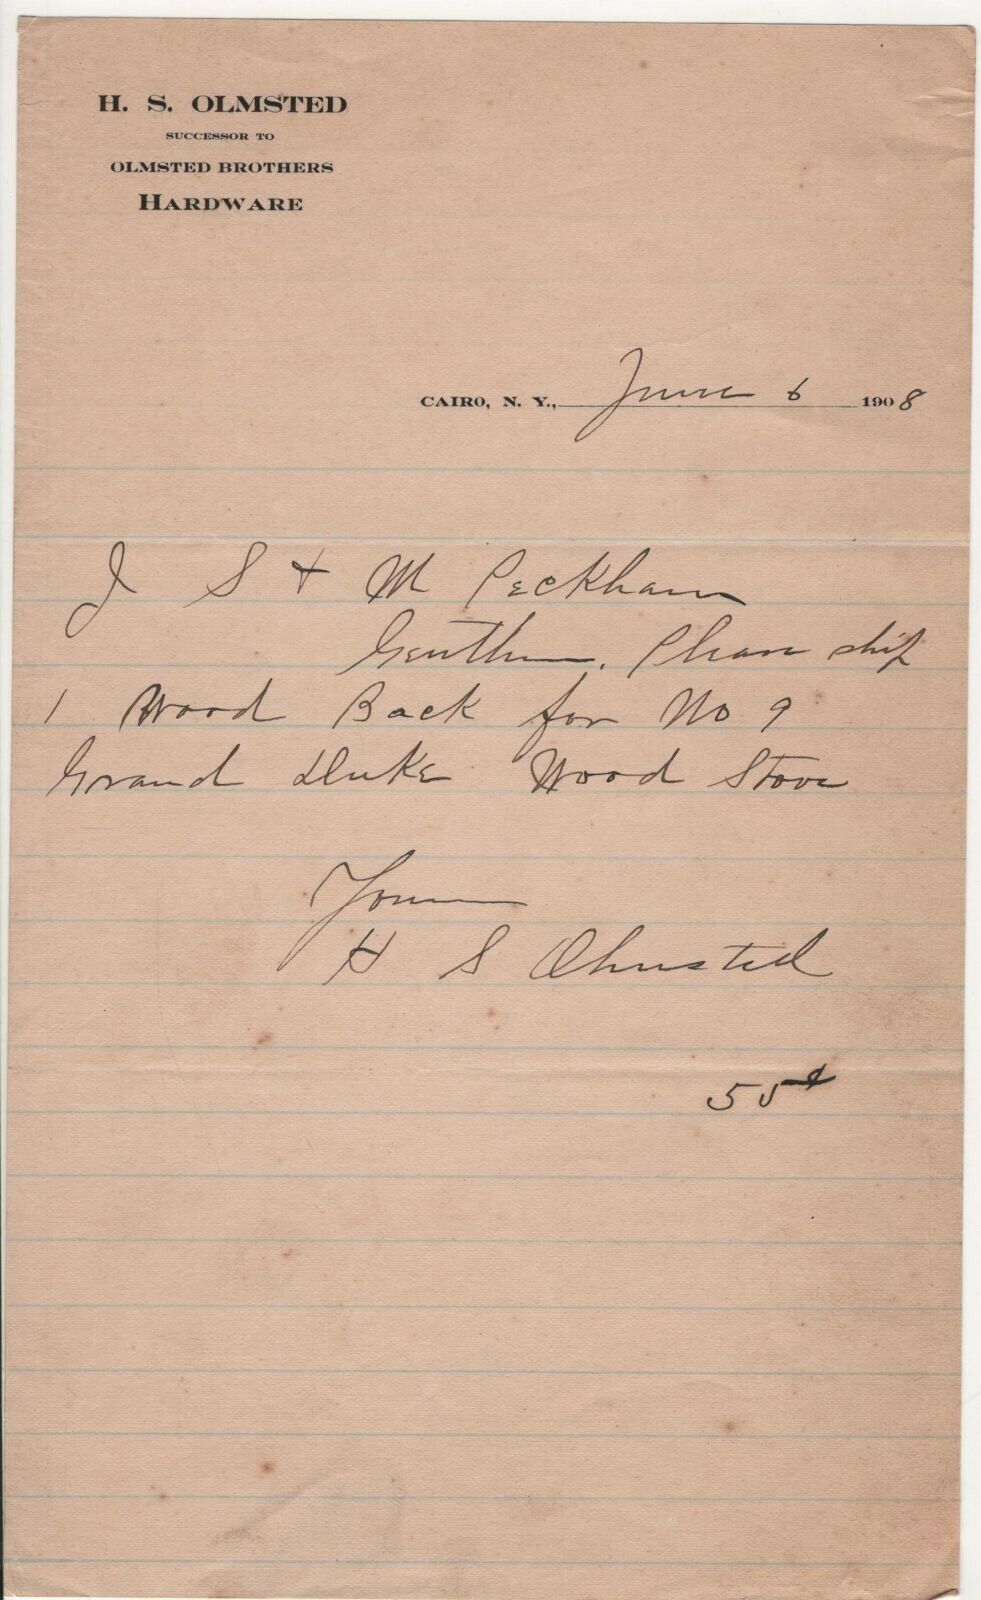 H. S. OLMSTED
SUCCESSOR TO
OLMSTED BROTHERS
HARDWARE
CAIRO, N. Y., June 6 1908
J S + M Peckham
Gentlemen. Please ship
1 Wood Back for No 9
Grand Duke Wood Stove
Yours
H S Olmsted
55¢